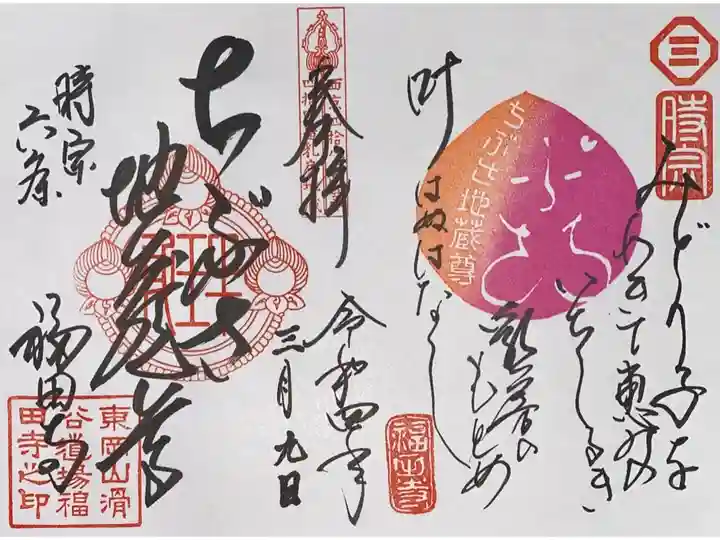 三
時宗
みどり子を
恵みの
もとめ
叶はぬはなし
ちぶさ
ちぶさ地蔵尊
福田寺
奉拝
令和四年
三月九日
ちぶさ
地蔵尊
時宗
六条
福田寺
東岡山滑
谷道場福
田寺之印